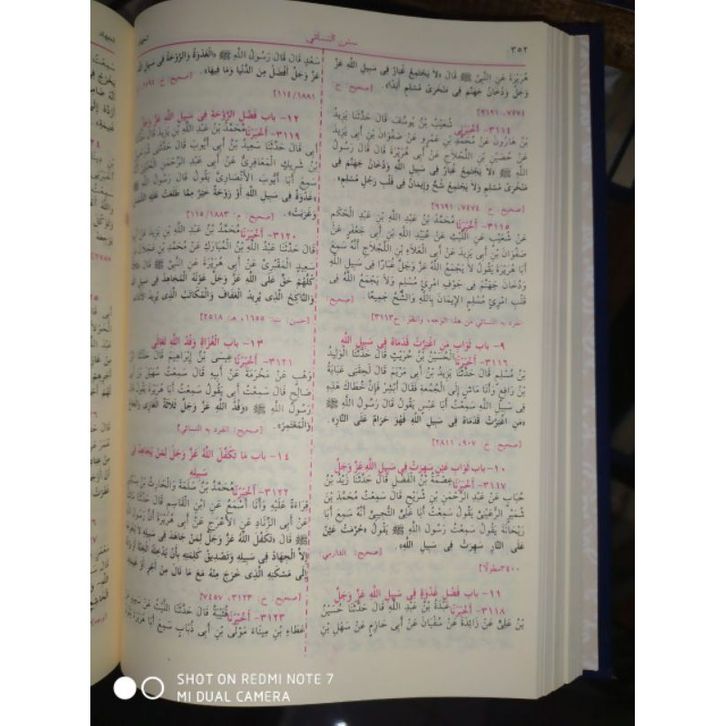 ٣٥٢
سنن النسائي
هُرَيْرَةَ عَنِ النَّبِيِّ ﷺ قَالَ «لَا يَجْتَمِعُ غُبَارٌ فِي سَبِيلِ اللَّهِ عَزَّ
وَجَلَّ وَدُخَانُ جَهَنَّمَ فِي مَنْخَرَيْ مُسْلِمٍ أَبَدًا». [صحيح: ح:
٧٤٧٤، ٩٦٩١]
٣١١٤- أَخْبَرَنَا شُعَيْبُ بْنُ يُوسُفَ قَالَ حَدَّثَنَا يَزِيدُ
بْنُ هَارُونَ عَنْ مُحَمَّدِ بْنِ عَمْرٍو عَنْ صَفْوَانَ بْنِ أَبِي يَزِيدَ
عَنْ حُصَيْنِ بْنِ اللَّجْلَاجِ عَنْ أَبِي هُرَيْرَةَ قَالَ قَالَ رَسُولُ
اللَّهِ ﷺ «لَا يَجْتَمِعُ غُبَارٌ فِي سَبِيلِ اللَّهِ وَدُخَانُ جَهَنَّمَ فِي
مَنْخَرَيْ مُسْلِمٍ وَلَا يَجْتَمِعُ شُحٌّ وَإِيمَانٌ فِي قَلْبِ رَجُلٍ مُسْلِمٍ».
[صحيح: ح: ٧٤٧٤، ٩٦٩١]
٣١١٥- أَخْبَرَنَا مُحَمَّدُ بْنُ عَبْدِ اللَّهِ بْنِ عَبْدِ الْحَكَمِ
عَنْ شُعَيْبٍ عَنِ اللَّيْثِ عَنْ عُبَيْدِ اللَّهِ بْنِ أَبِي جَعْفَرٍ عَنْ
صَفْوَانَ بْنِ أَبِي يَزِيدَ عَنْ أَبِي الْعَلَاءِ بْنِ اللَّجْلَاجِ أَنَّهُ سَمِعَ
أَبَا هُرَيْرَةَ يَقُولُ لَا يَجْمَعُ اللَّهُ عَزَّ وَجَلَّ غُبَارًا فِي سَبِيلِ اللَّهِ
وَدُخَانَ جَهَنَّمَ فِي جَوْفِ امْرِئٍ مُسْلِمٍ وَلَا يَجْمَعُ اللَّهُ فِي
قَلْبِ امْرِئٍ مُسْلِمٍ الْإِيمَانَ بِاللَّهِ وَالشُّحَّ جَمِيعًا. [صحيح:
انفرد به النسائي من هذا الوجه، وانظر: ح٣١١٣]
٩- باب ثَوَابِ مَنِ اغْبَرَّتْ قَدَمَاهُ فِي سَبِيلِ اللَّهِ
٣١١٦- أَخْبَرَنَا الْحُسَيْنُ بْنُ حُرَيْثٍ قَالَ حَدَّثَنَا الْوَلِيدُ
بْنُ مُسْلِمٍ قَالَ حَدَّثَنَا يَزِيدُ بْنُ أَبِي مَرْيَمَ قَالَ لَحِقَنِي عَبَايَةُ
بْنُ رَافِعٍ وَأَنَا مَاشٍ إِلَى الْجُمُعَةِ فَقَالَ أَبْشِرْ فَإِنَّ خُطَاكَ هَذِهِ
فِي سَبِيلِ اللَّهِ سَمِعْتُ أَبَا عَبْسٍ يَقُولُ قَالَ رَسُولُ اللَّهِ ﷺ
«مَنِ اغْبَرَّتْ قَدَمَاهُ فِي سَبِيلِ اللَّهِ فَهُوَ حَرَامٌ عَلَى النَّارِ».
[صحيح: خ: ٩٠٧، ٢٨١١]
١٠- باب ثَوَابِ عَيْنٍ سَهِرَتْ فِي سَبِيلِ اللَّهِ عَزَّ وَجَلَّ
أَخْبَرَنَا عِصْمَةُ بْنُ الْفَضْلِ قَالَ حَدَّثَنَا زَيْدُ بْنُ
حُبَابٍ عَنْ عَبْدِ الرَّحْمَنِ بْنِ شُرَيْحٍ قَالَ سَمِعْتُ مُحَمَّدَ بْنَ
شُمَيْرٍ الرُّعَيْنِيَّ يَقُولُ سَمِعْتُ أَبَا عَلِيٍّ التُّجِيبِيَّ أَنَّهُ سَمِعَ أَبَا
رَيْحَانَةَ يَقُولُ سَمِعْتُ رَسُولَ اللَّهِ ﷺ يَقُولُ «حُرِّمَتْ عَيْنٌ
عَلَى النَّارِ سَهِرَتْ فِي سَبِيلِ اللَّهِ». [صحيح: الدارمي:
٢٤٠٠ مطولًا]
١١- باب فَضْلِ غَدْوَةٍ فِي سَبِيلِ اللَّهِ عَزَّ وَجَلَّ
٣١١٨- أَخْبَرَنَا عَبْدَةُ بْنُ عَبْدِ اللَّهِ قَالَ حَدَّثَنَا حُسَيْنُ
بْنُ عَلِيٍّ عَنْ زَائِدَةَ عَنْ سُفْيَانَ عَنْ أَبِي حَازِمٍ عَنْ سَهْلِ بْنِ
سَعْدٍ قَالَ قَالَ رَسُولُ اللَّهِ ﷺ «الْغَدْوَةُ وَالرَّوْحَةُ فِي سَبِيلِ اللَّهِ
عَزَّ وَجَلَّ أَفْضَلُ مِنَ الدُّنْيَا وَمَا فِيهَا».
١١٤/١٨٨١]
١٢- باب فَضْلِ الرَّوْحَةِ فِي سَبِيلِ اللَّهِ عَزَّ وَجَلَّ
٣١١٩- أَخْبَرَنَا مُحَمَّدُ بْنُ عَبْدِ اللَّهِ بْنِ يَزِيدَ قَالَ حَدَّثَنَا
أَبِي قَالَ حَدَّثَنَا سَعِيدُ بْنُ أَبِي أَيُّوبَ قَالَ حَدَّثَنِي شُرَحْبِيلُ
بْنُ شَرِيكٍ الْمَعَافِرِيُّ عَنْ أَبِي عَبْدِ الرَّحْمَنِ الْحُبُلِيِّ أَنَّهُ
سَمِعَ أَبَا أَيُّوبَ الْأَنْصَارِيَّ يَقُولُ قَالَ رَسُولُ اللَّهِ ﷺ
«غَدْوَةٌ فِي سَبِيلِ اللَّهِ أَوْ رَوْحَةٌ خَيْرٌ مِمَّا طَلَعَتْ عَلَيْهِ الشَّمْسُ
وَغَرَبَتْ». [صحيح: م: ١١٥/١٨٨٣]
٣١٢٠- أَخْبَرَنَا مُحَمَّدُ بْنُ عَبْدِ اللَّهِ بْنِ يَزِيدَ عَنْ أَبِيهِ
قَالَ حَدَّثَنَا عَبْدُ اللَّهِ بْنُ الْمُبَارَكِ عَنْ مُحَمَّدِ بْنِ عَجْلَانَ عَنْ
سَعِيدٍ الْمَقْبُرِيِّ عَنْ أَبِي هُرَيْرَةَ عَنِ النَّبِيِّ ﷺ قَالَ
كُلُّهُمْ حَقٌّ عَلَى اللَّهِ عَزَّ وَجَلَّ عَوْنُهُ الْمُجَاهِدُ فِي سَبِيلِ اللَّهِ
وَالنَّاكِحُ الَّذِي يُرِيدُ الْعَفَافَ وَالْمُكَاتَبُ الَّذِي يُرِيدُ الْأَدَاءَ
[حسن: ت: ١٦٥٥، هـ: ٢٥١٨]
١٣- باب الْغُزَاةُ وَفْدُ اللَّهِ تَعَالَى
٣١٢١- أَخْبَرَنَا عِيسَى بْنُ إِبْرَاهِيمَ قَالَ حَدَّثَنَا
وَهْبٍ عَنْ مَخْرَمَةَ عَنْ أَبِيهِ قَالَ سَمِعْتُ سُهَيْلَ بْنَ أَبِي
صَالِحٍ قَالَ سَمِعْتُ أَبِي يَقُولُ سَمِعْتُ أَبَا هُرَيْرَةَ يَقُولُ قَالَ
رَسُولُ اللَّهِ ﷺ «وَفْدُ اللَّهِ عَزَّ وَجَلَّ ثَلَاثَةٌ الْغَازِي وَالْحَاجُّ
وَالْمُعْتَمِرُ». [صحيح: انفرد به النسائي]
١٤- باب مَا تَكَفَّلَ اللَّهُ عَزَّ وَجَلَّ لِمَنْ يُجَاهِدُ فِي
سَبِيلِهِ
٣١٢٢- أَخْبَرَنَا مُحَمَّدُ بْنُ سَلَمَةَ وَالْحَارِثُ بْنُ مِسْكِينٍ
قِرَاءَةً عَلَيْهِ وَأَنَا أَسْمَعُ عَنِ ابْنِ الْقَاسِمِ قَالَ حَدَّثَنِي
عَنْ أَبِي الزِّنَادِ عَنِ الْأَعْرَجِ عَنْ أَبِي هُرَيْرَةَ أَنَّ رَسُولَ
اللَّهِ ﷺ قَالَ «تَكَفَّلَ اللَّهُ عَزَّ وَجَلَّ لِمَنْ جَاهَدَ فِي سَبِيلِهِ
إِلَّا الْجِهَادُ فِي سَبِيلِهِ وَتَصْدِيقُ كَلِمَتِهِ بِأَنْ يُدْخِلَهُ الْجَنَّةَ أَوْ
إِلَى مَسْكَنِهِ الَّذِي خَرَجَ مِنْهُ مَعَ مَا نَالَ مِنْ أَجْرٍ أَوْ غَنِيمَةٍ
[صحيح: خ: ٣١٢٣، ٧٤٥٧]
٣١٢٣- أَخْبَرَنَا قُتَيْبَةُ قَالَ حَدَّثَنَا اللَّيْثُ عَنْ سَعِيدٍ
عَطَاءِ بْنِ مِينَاءَ مَوْلَى بْنِ أَبِي ذُبَابٍ سَمِعَ أَبَا هُرَيْرَةَ
SHOT ON REDMI NOTE 7
MI DUAL CAMERA